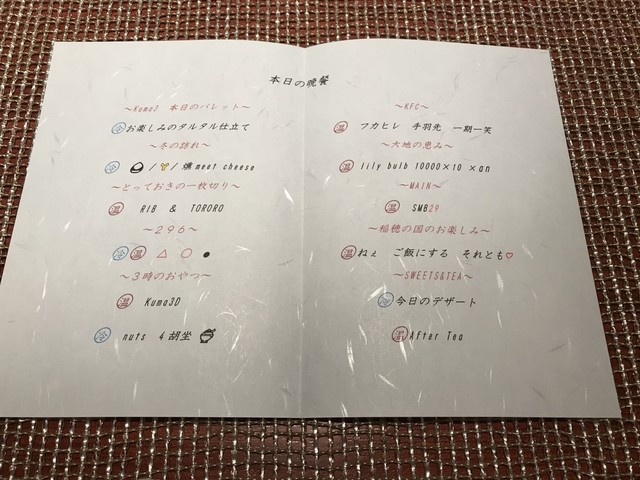 本日の晩餐
～Kuma3　本日のパレット～
冷 お楽しみのタルタル仕立て
～冬の訪れ～
冷 / / 燻 meet cheese
～とっておきの一枚切り～
温 RIB ＆ TORORO
～２９６～
冷 温 △ ○ ●
～３時のおやつ～
温 Kuma3D
冷 nuts 4 胡坐
～KFC～
温 フカヒレ　手羽先　一期一笑
～大地の恵み～
温 lily bulb 10000×10 ×an
～MAIN～
温 SMB29
～稲穂の国のお楽しみ～
温 ねぇ　ご飯にする　それとも♡
～SWEETS&TEA～
冷 今日のデザート
温 After Tea